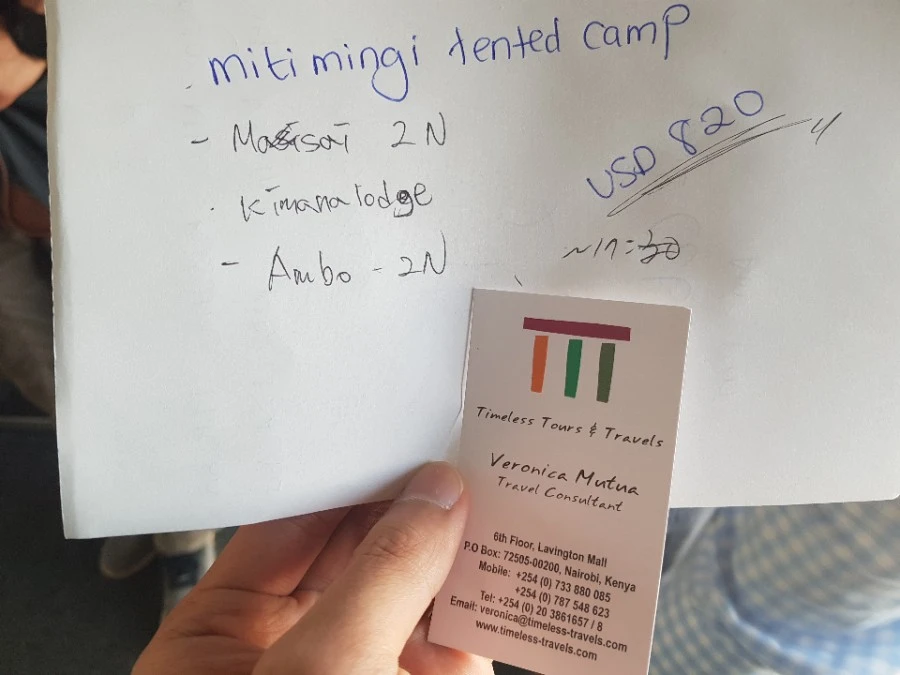 miti mingi tented camp
- Masisai 2N
USD 820
Kimana lodge
- Ambo - 2N
Timeless Tours & Travels
Veronica Mutua
Travel Consultant
6th Floor, Lavington Mall
P.O Box: 72505-00200, Nairobi, Kenya
Mobile: +254 (0) 733 880 085
+254 (0) 787 548 623
Tel: +254 (0) 20 3861657 / 8
Email: veronica@timeless-travels.com
www.timeless-travels.com